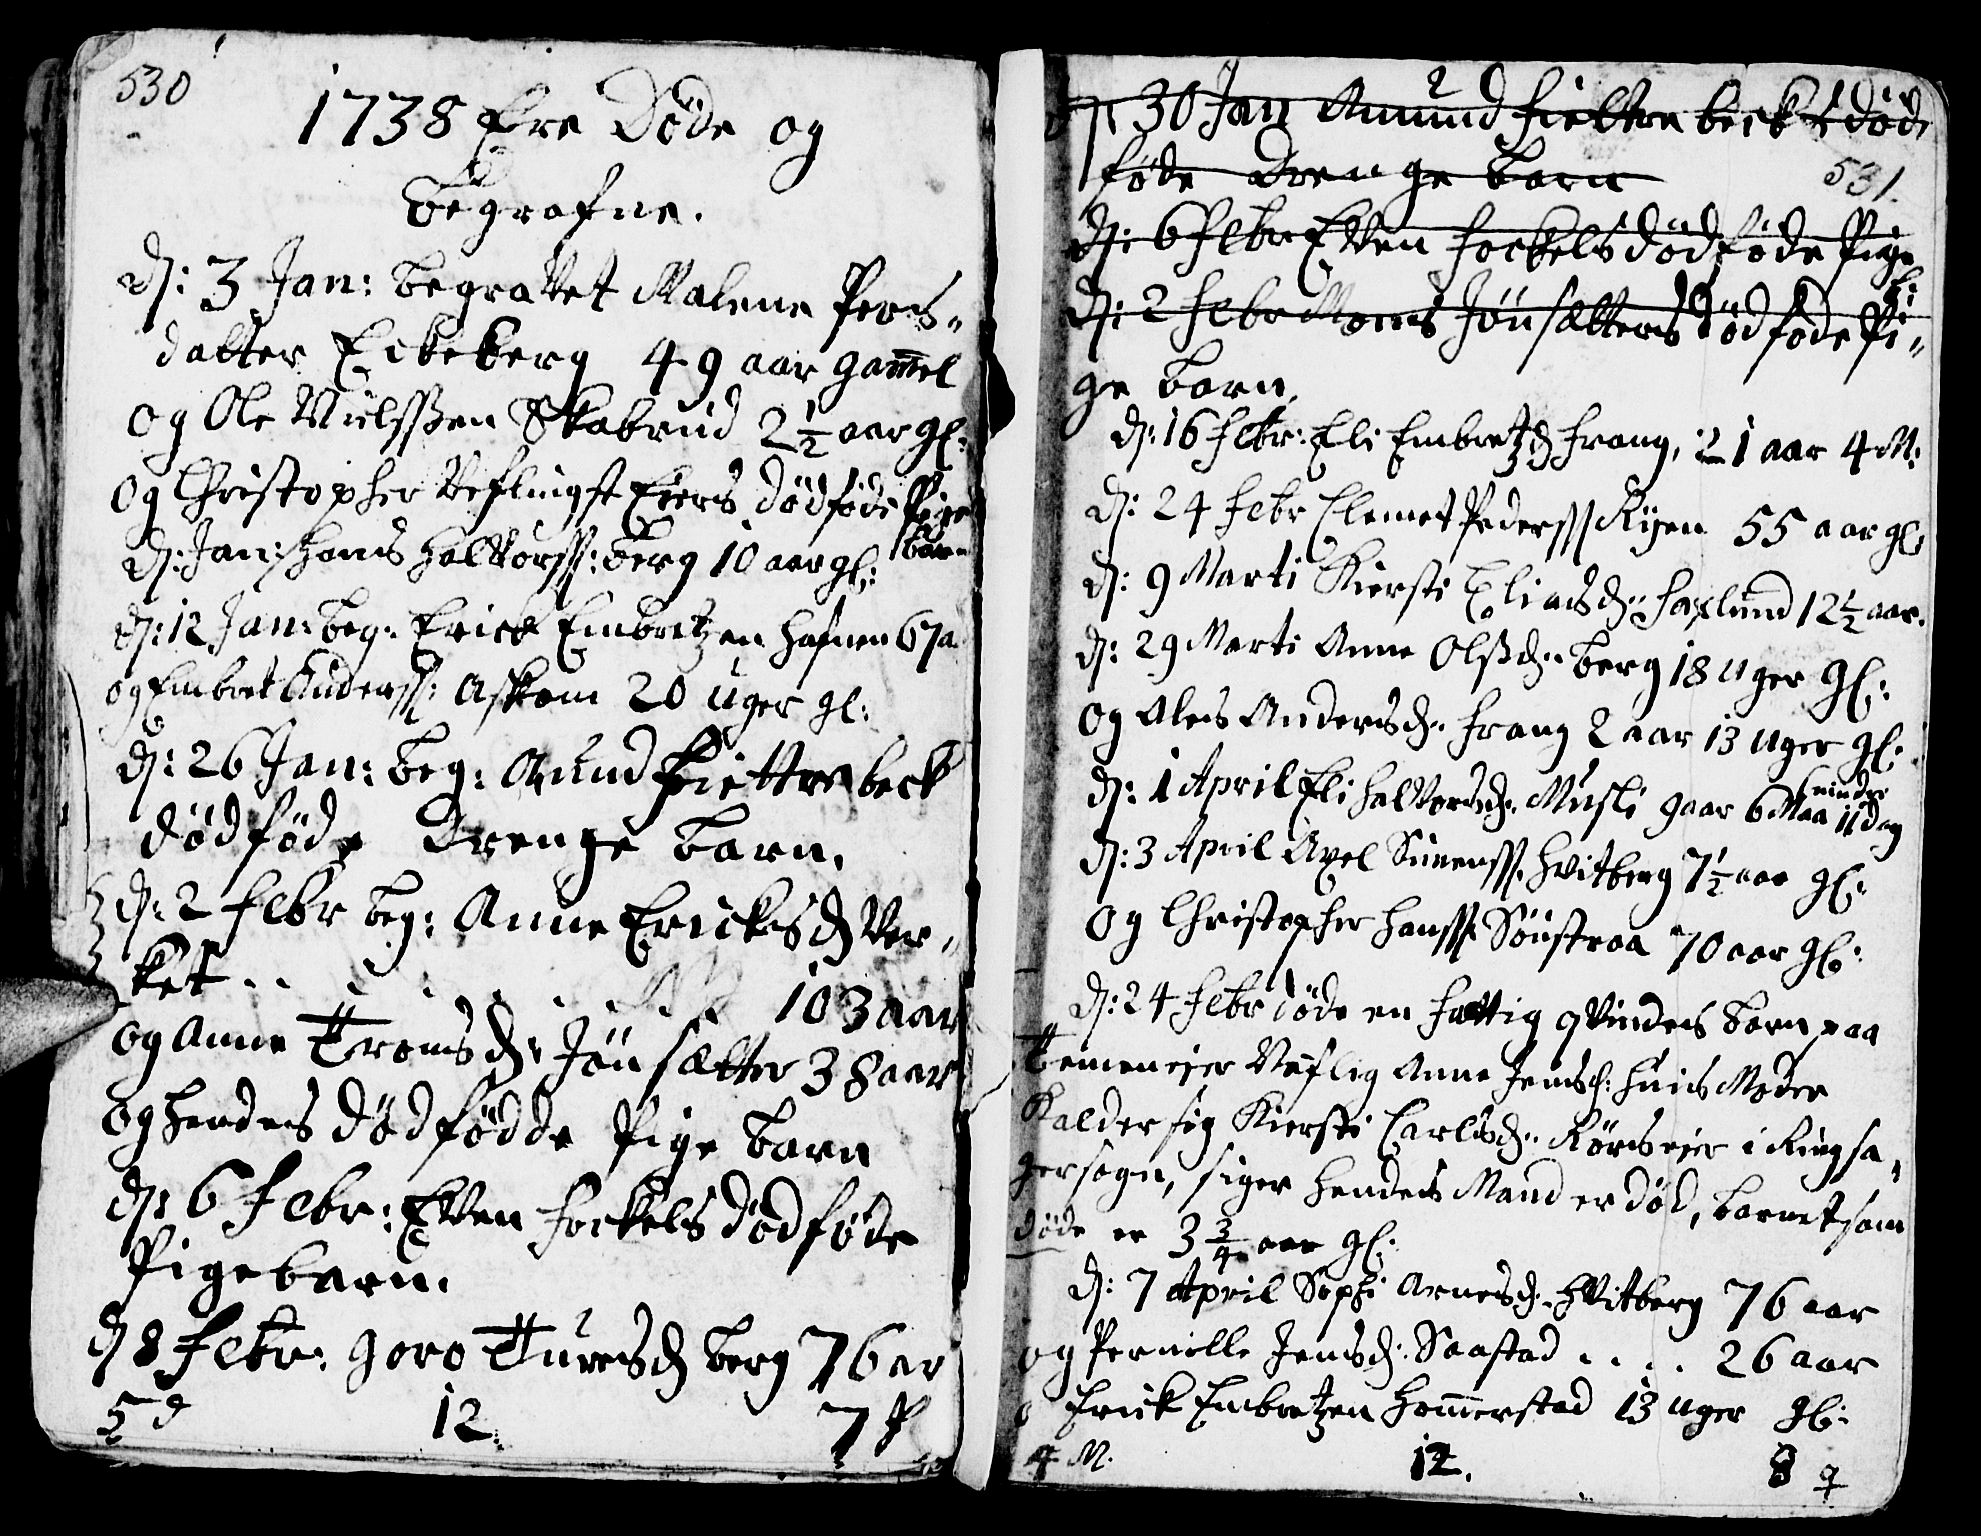 530
1738 Ere Døde og
Begrafne.
D: 3 Jan: begravet Malene Pers-
datter Eckeberg 49 aar gamel
og Ole Nielssøn Skabrud 2 1/2 aar gl:
og Christopher Røflingst Eiers dødføde Pige
barn
D: Jan: Hans Halvorss: Berg 10 aar gl:
D: 12 Jan: beg: Erick Embretzen Hafnen 67 a
og Embret Anderss: Askom 20 uger gl:
D: 26 Jan: beg: Amund Fiettre beck
dødføde Drenge barn.
D: 2 Febr beg: Anne Ericksd Ver-
ket . . . . . . . . 103 aar
og Anne Tromsd: Jønsætter 38 aar
og hendes dødfødde Pige barn
D: 6 Febr: Even Fockels dødføde
Pigebarn.
D 8 Febr: Goro Turesd berg 76 ar
5 d 12. 7 P
D: 30 Jan Amund Fiettre beck døde
føde Drenge barn
531.
D: 6 Febr Even Fockels dødføde Pige
b:
D: 2 Febr Moens Jønsætters dødføde Pi-
ge barn.
D: 16 Febr: Eli Embretzd Frang, 1 aar 4 M:
D: 24 Febr Clemet Pederss Ryen 55 aar gl:
D: 9 Marti Kiersti Eliasd: Haxlund 12 1/2 aar.
D: 29 Marti Anne Olsd: Berg 18 uger gl:
og Ales Andersd: Frang 2 aar 13 uger gl:
D: 1 April Eli Halvorsd: Musli 9 aar 6 Maa 11 dag
mindre
D: 3 April Axel Simenss. Hvitberg 7 1/2 aar gl:
og Christopher Hanss Sønstraa 70 aar gl:
D: 24 Febr døde en fattig qvindes barn paa
Temeneier Røflig Anne Jensd: huis Moder
Kalder sig Kiersti Carlsd: Rørseier i Ringsa-
gersogn, siger hendes Mand er død, barnet som
døde er 3 3/4 aar gl:
D: 7 April Sophi Arnesd: Hvitberg 76 aar
og Pernille Jensd: Saastad . . . . 26 aar
Erick Embretzen Homerstad 13 uger gl:
4 M. 12. 8 ♀